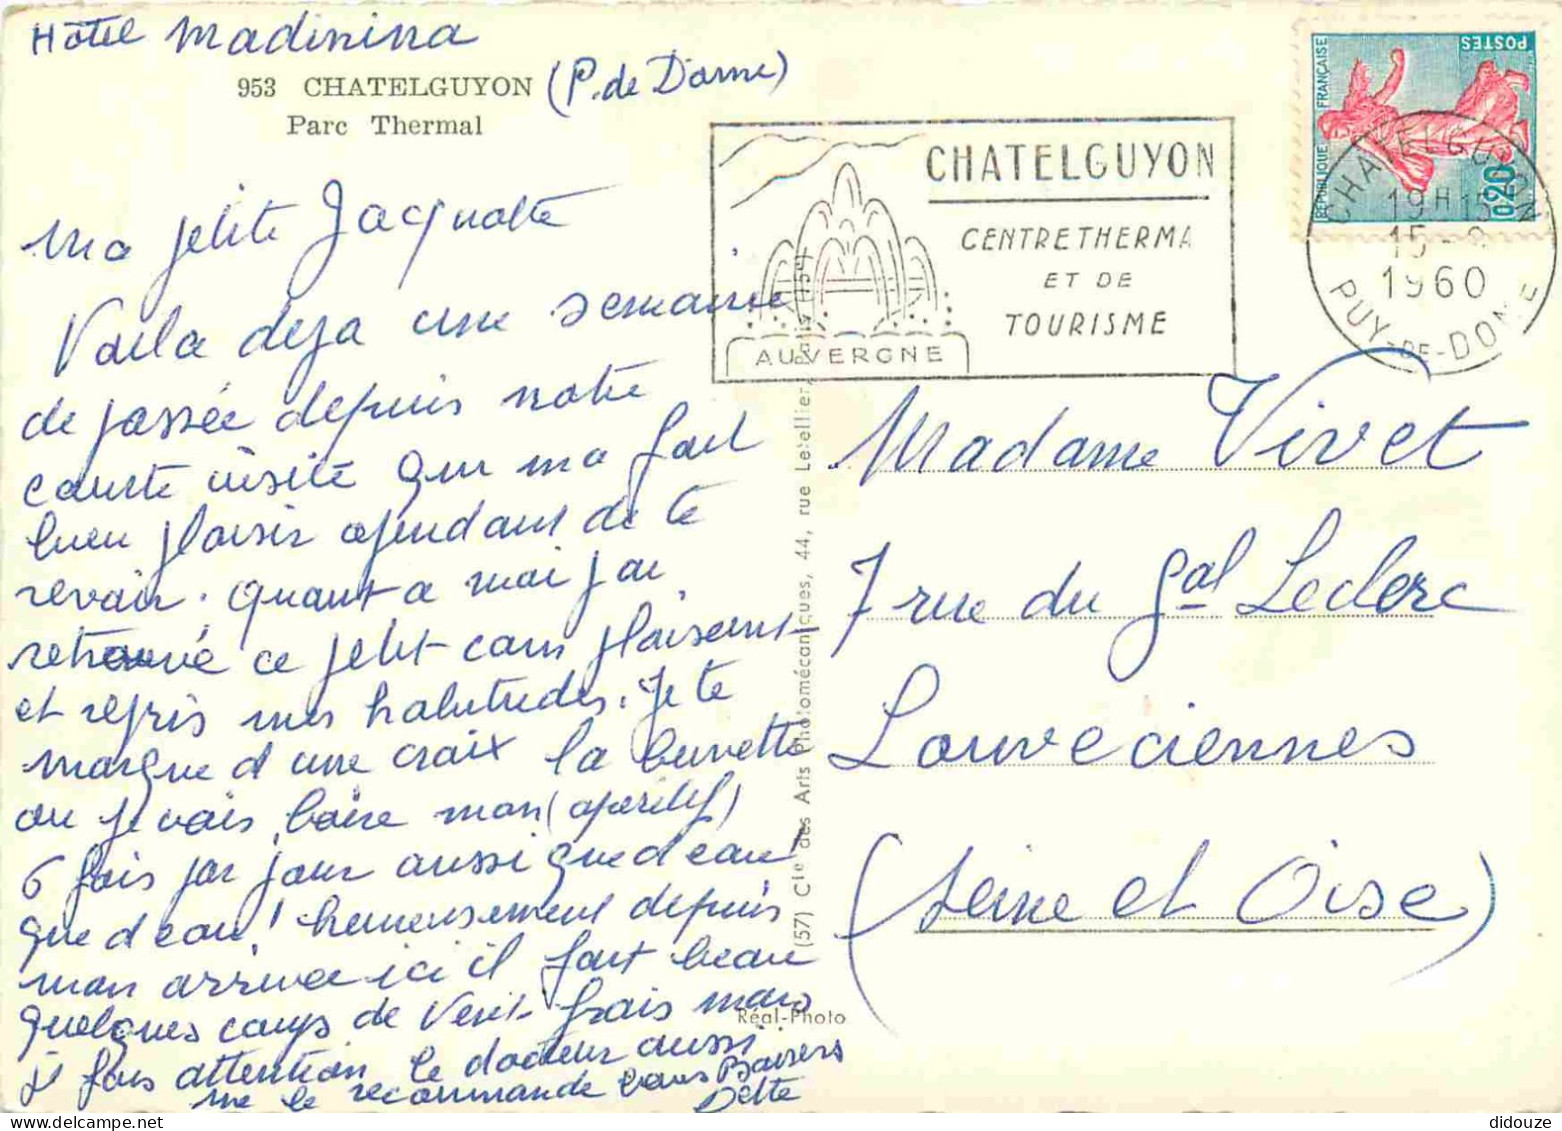 Hôtel Madinina
953 CHATELGUYON (P. de Dome)
Parc Thermal
Ma petite Jacquotte
Voila deja une semaine
de passée depuis notre
courte visite qui ma fait
bien plaisir cependant de te
revoir. Quant a moi j'ai
retrouvé ce petit coin plaisant
et repris mes habitudes. Je te
marque d'une croix la buvette
ou je vais boire mon (aperitif)
6 fois par jour aussi que d'eau
que d'eau! heureusement depuis
mon arrivée ici il fait beau
quelques coups de vent frais mais
j'y fais attention le docteur aussi
me le recommande bons Baisers
CHATELGUYON
CENTRE THERMA
ET DE
TOURISME
AUVERGNE
RÉPUBLIQUE FRANÇAISE
POSTES
0,20
CHATELGUYON
19H15
15 - 8
1960
PUY-DE-DOME
Madame Vivet
7 rue du Gal Leclerc
Louveciennes
(Seine et Oise)
(57) Cie des Arts Photomécaniques, 44, rue Letellier, Paris (15e)
Réal-Photo
didouze